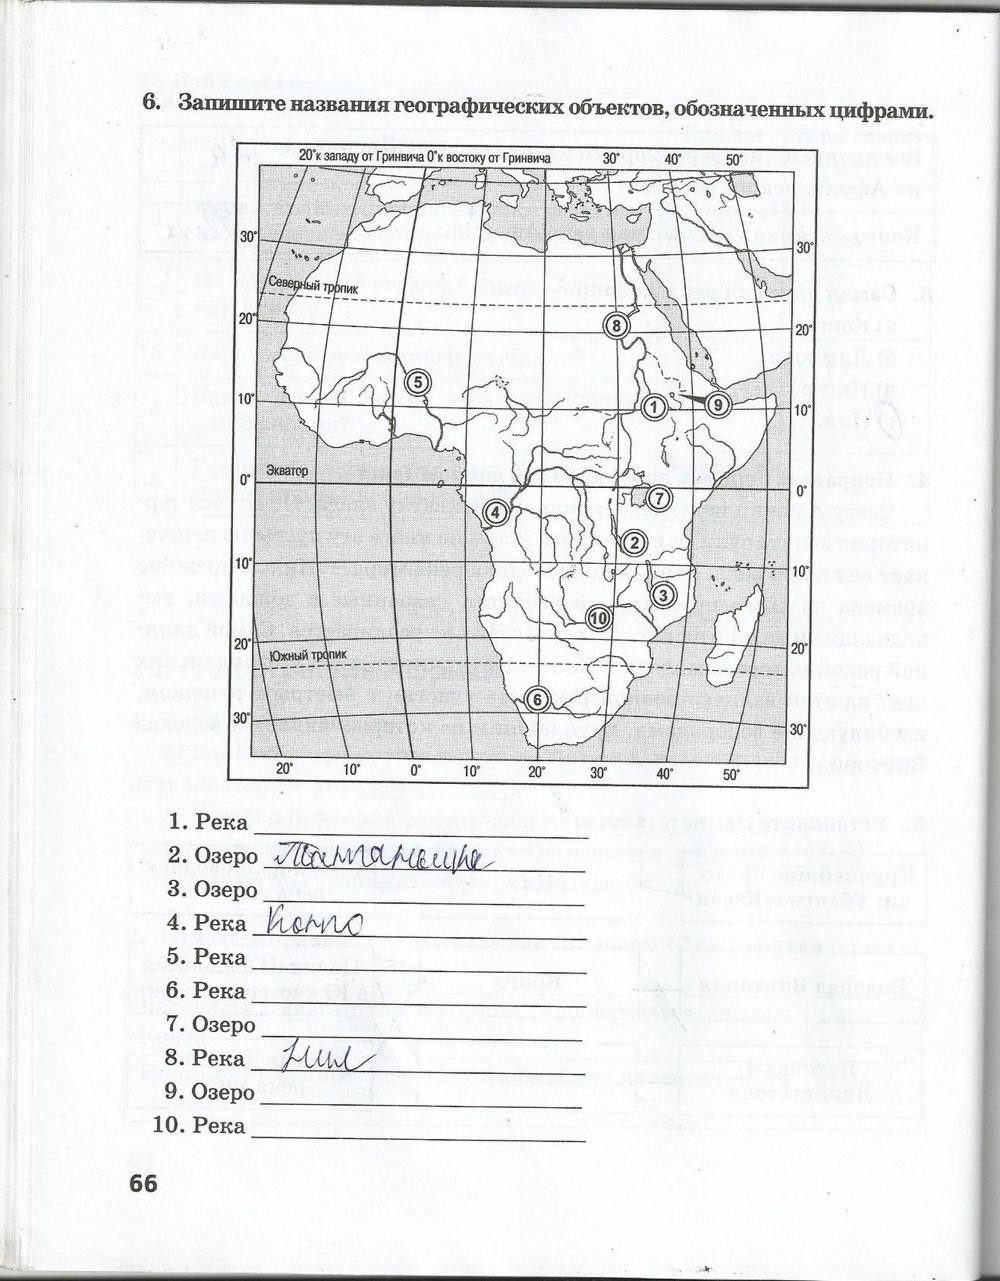 6. Запишите названия географических объектов, обозначенных цифрами.
20° к западу от Гринвича 0° к востоку от Гринвича 30° 40° 50°
30° 30°
Северный тропик
20° 20°
8
5
10° 1 9 10°
Экватор
0° 0°
7
4
2
10° 10°
3
10
20° 20°
Южный тропик
6
30° 30°
20° 10° 0° 10° 20° 30° 40° 50°
1. Река
2. Озеро Танганьика
3. Озеро
4. Река Конго
5. Река
6. Река
7. Озеро
8. Река Нил
9. Озеро
10. Река
66